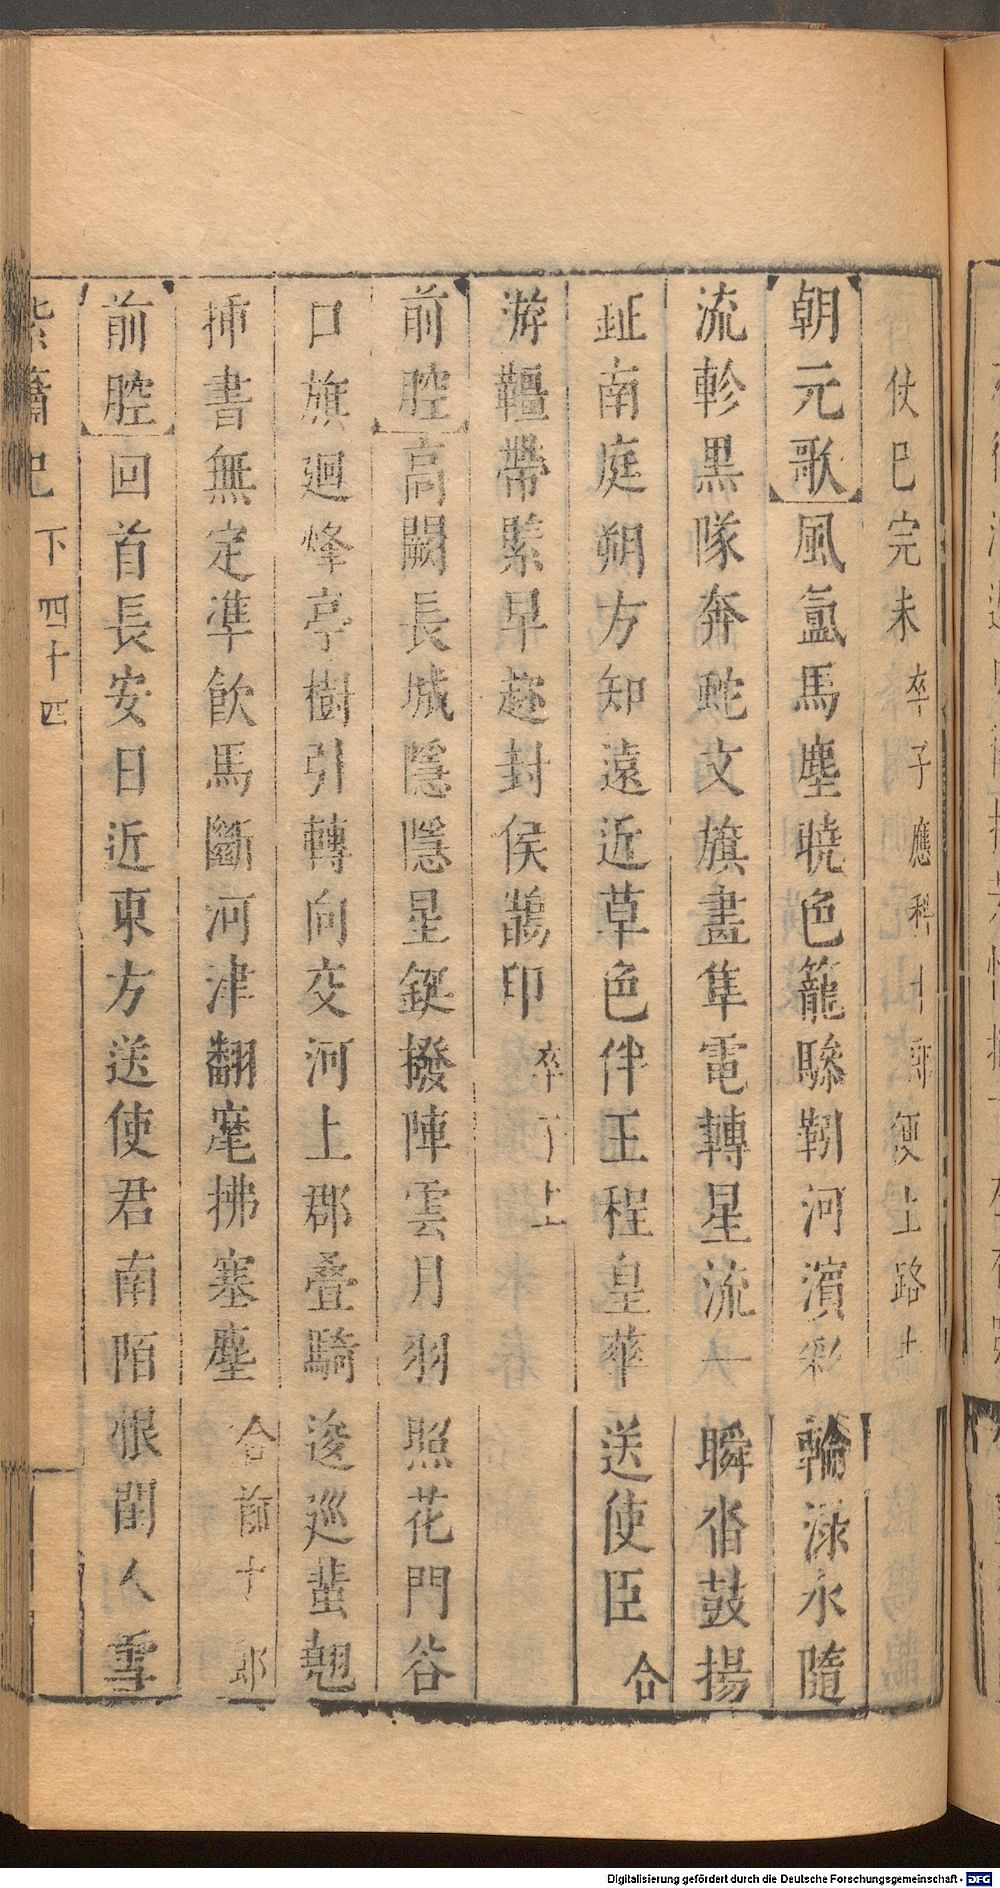 仗已完未卒子應科十郎便上路上
朝元歌風氳馬塵曉色籠驂靷河濱彩輪淥水隨
流軫黑隊奔鉈文旗畫隼電轉星流一瞬沓鼓揚
鉦南庭朔方知遠近草色伴王程皇華送使臣合
游韁帶緊早趂封侯鵲印卒子上
前腔高闕長城隱隱星鋋撥陣雲月羽照花門谷
口旗迴烽亭樹引轉向交河上郡疊騎逡巡蜚翹
揷書無定準飲馬斷河津翻麾拂塞塵合前十郎
前腔回首長安日近東方送使君南陌恨閨人雪
紫簫記 下 四十四
Digitalisierung gefördert durch die Deutsche Forschungsgemeinschaft - DFG